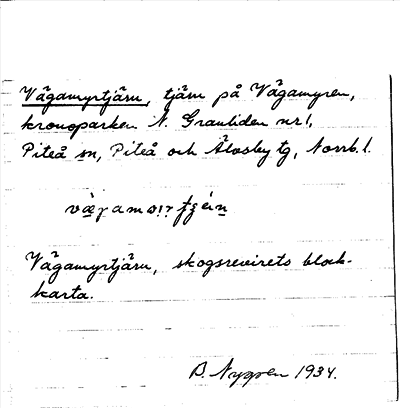 Vägamyrtjärn, tjärn på Vägamyren,
kronoparken N. Granliden nr 1,
Piteå sn, Piteå och Älvsby tg, Norrb. l.
Vägamyrtjärn, skogsrevirets block-
karta.
B. Nygren 1934.